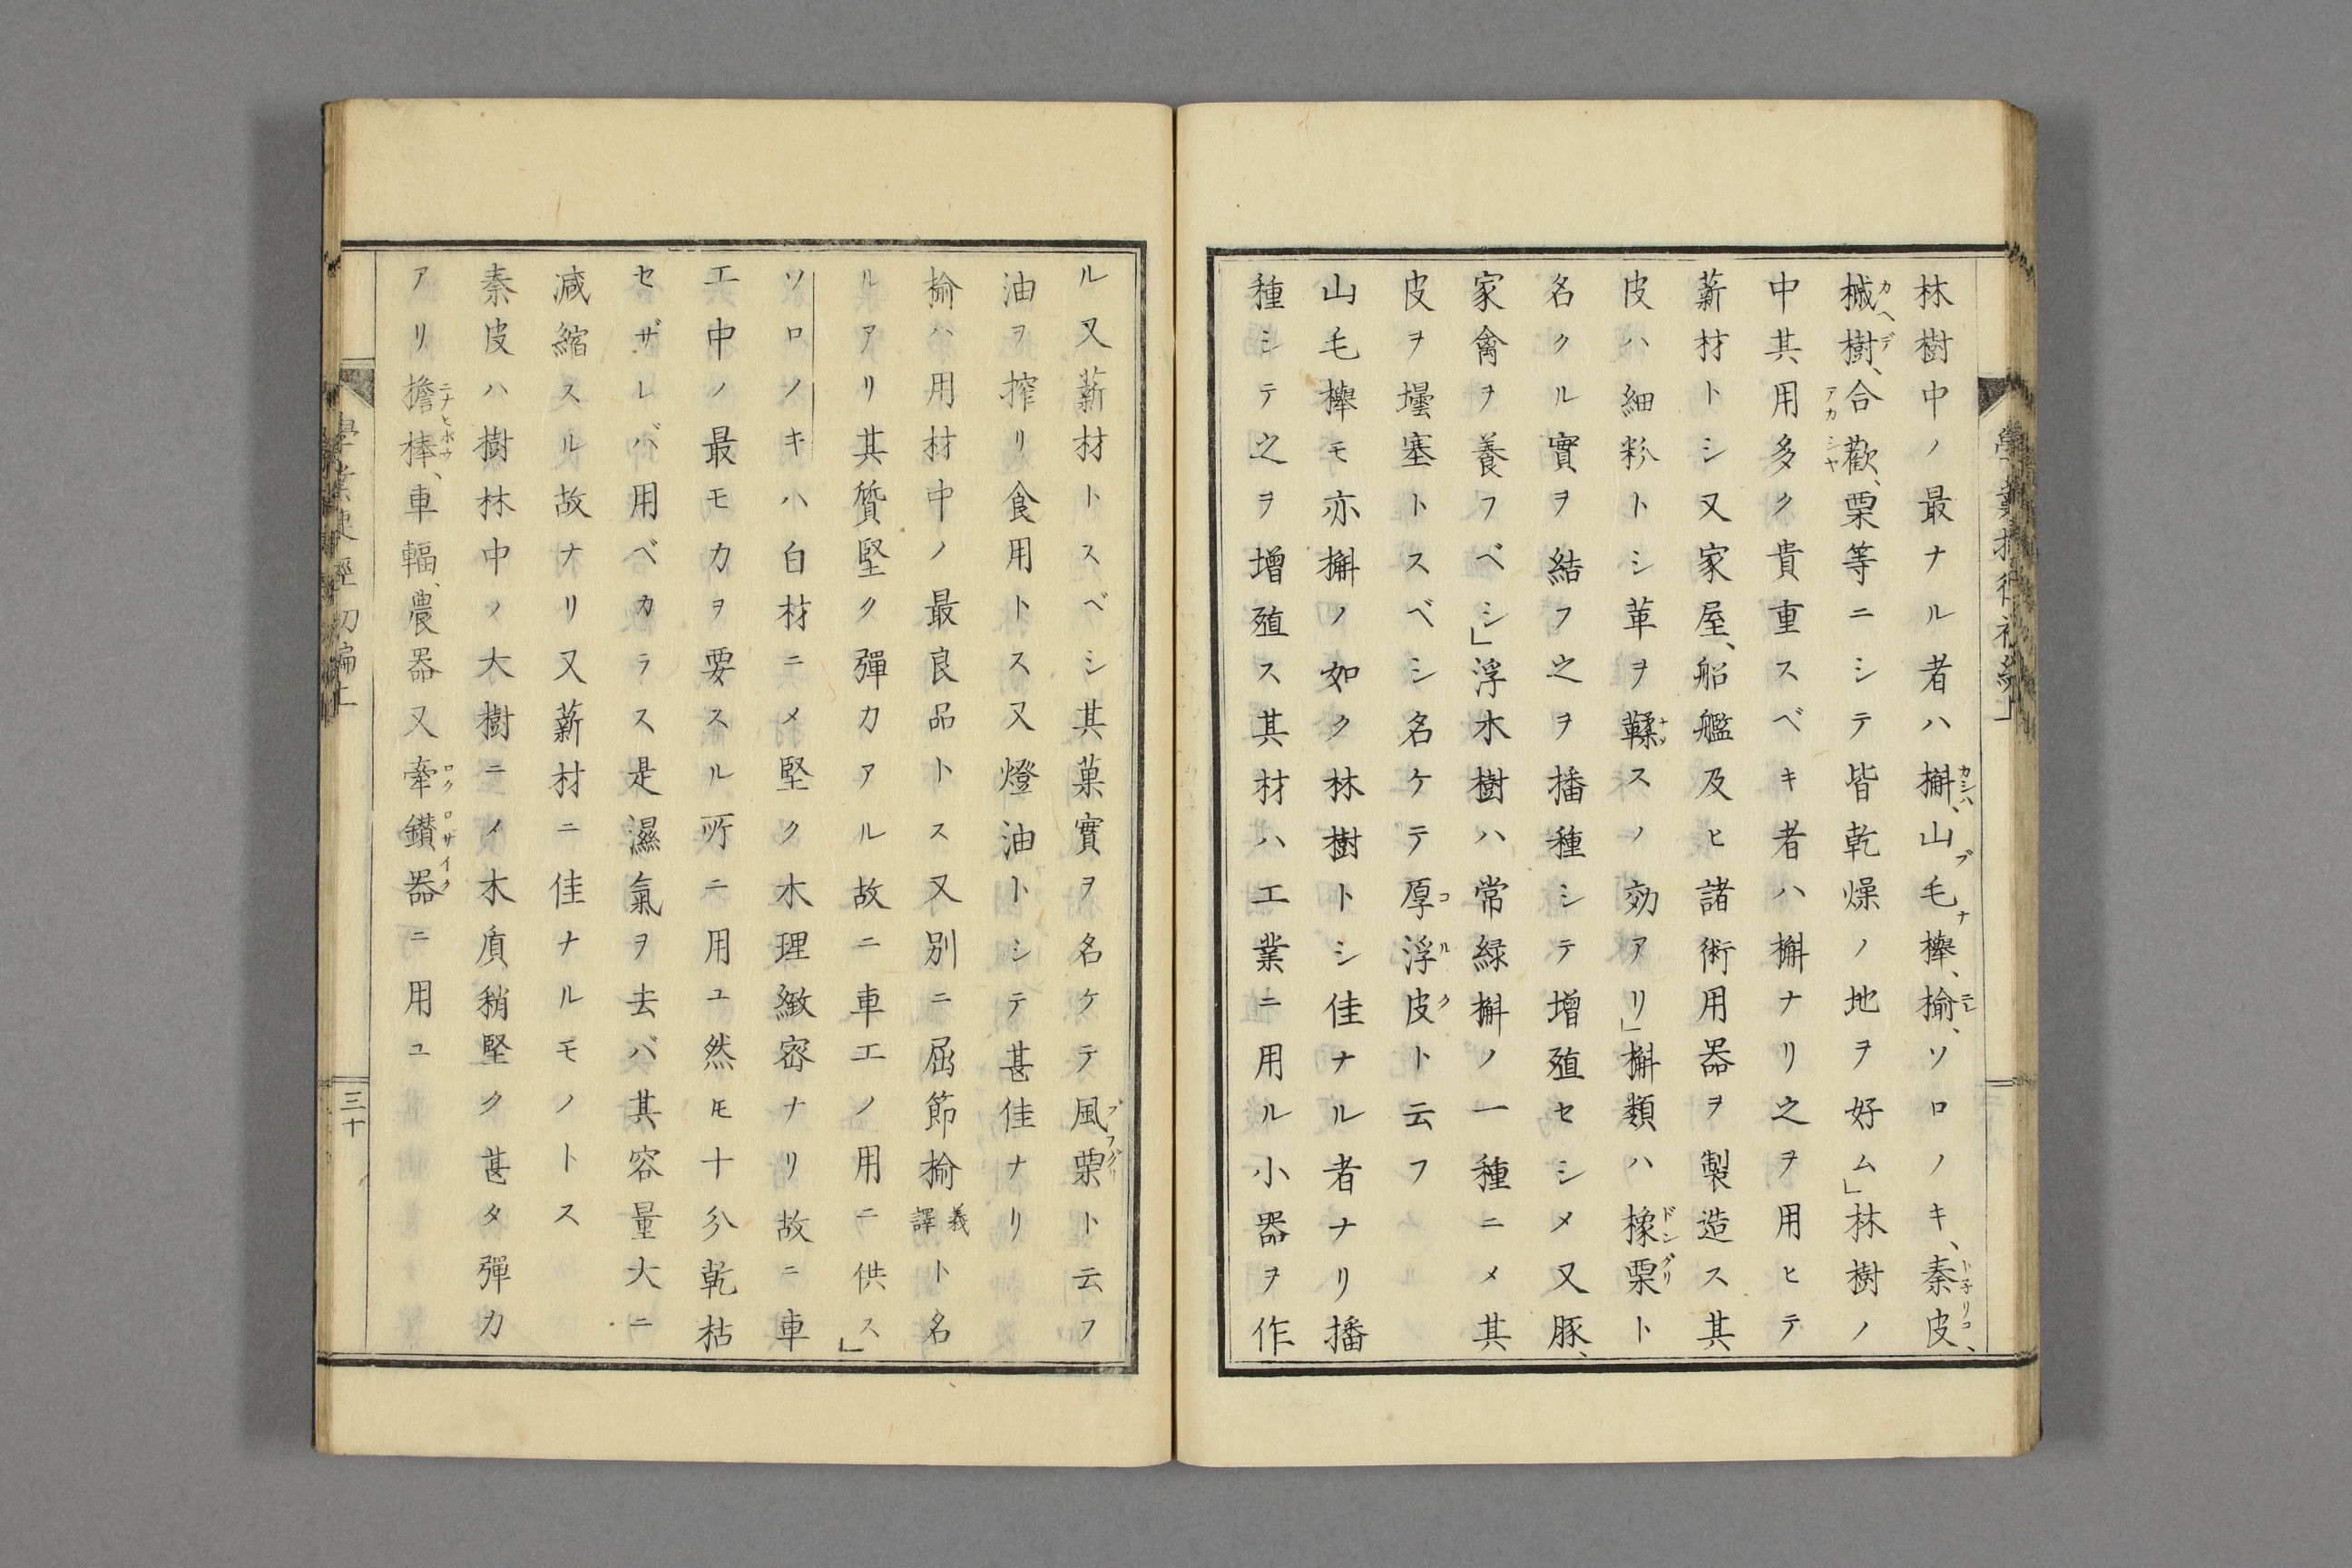 林樹中ノ最ナル者ハ槲、山毛欅、楡、ソロノキ、秦皮、
槭樹、合歡、栗等ニシテ皆乾燥ノ地ヲ好ム」林樹ノ
中其用多ク貴重スベキ者ハ槲ナリ之ヲ用ヒテ
薪材トシ又家屋、船艦及ヒ諸術用器ヲ製造ス其
皮ハ細粉トシ革ヲ鞣スノ効アリ」槲類ハ橡栗ト
名クル實ヲ結フ之ヲ播種シテ増殖セシメ又豚、
家禽ヲ養フベシ」浮木樹ハ常緑槲ノ一種ニメ其
皮ヲ壜塞トスベシ名ケテ厚浮皮ト云フ
山毛欅モ亦槲ノ如ク林樹トシ佳ナル者ナリ播
種シテ之ヲ増殖ス其材ハ工業ニ用ル小器ヲ作
ル又薪材トスベシ其菓實ヲ名ケテ風栗ト云フ
油ヲ搾リ食用トス又燈油トシテ甚佳ナリ
楡ハ用材中ノ最良品トス又別ニ屈節楡義譯ト名
ルアリ其質堅ク彈力アル故ニ車工ノ用ニ供ス」
ソロノキハ白材ニメ堅ク木理緻密ナリ故ニ車
工中ノ最モ力ヲ要スル所ニ用ユ然𪜈十分乾枯
セザレバ用ベカラス是濕氣ヲ去バ其容量大ニ
減縮スル故ナリ又薪材ニ佳ナルモノトス
秦皮ハ樹林中ノ大樹ニノ木質稍堅ク甚タ彈力
アリ擔棒、車輻、農器又牽鑚器ニ用ユ
三十